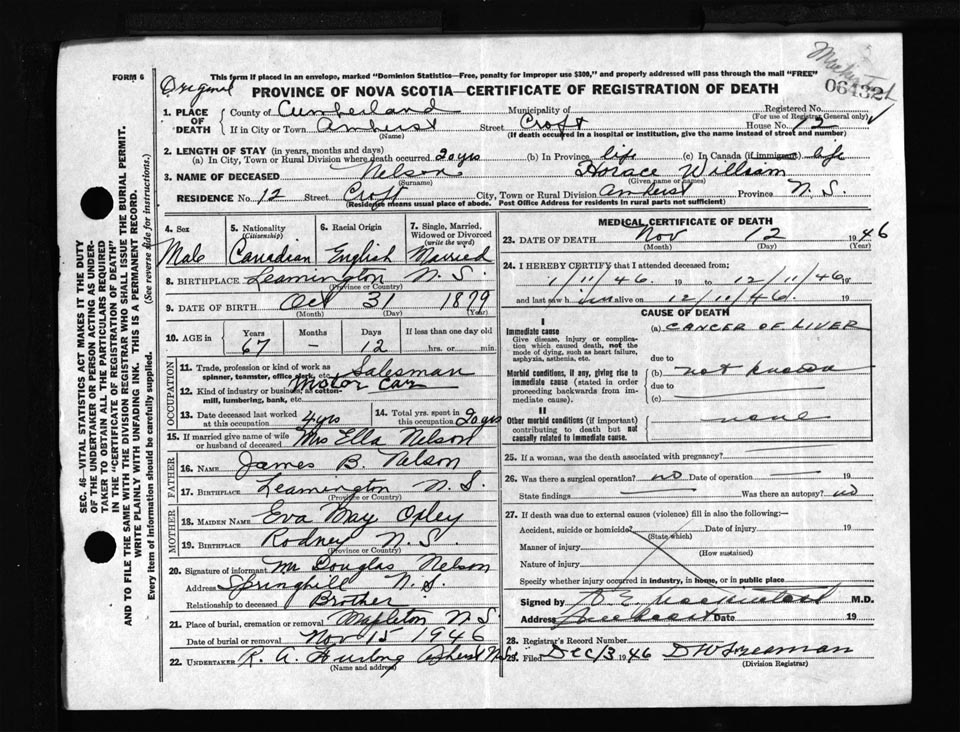 FORM 6
Original
This form if placed in an envelope, marked "Dominion Statistics—Free, penalty for improper use $300," and properly addressed will pass through the mail "FREE"
PROVINCE OF NOVA SCOTIA—CERTIFICATE OF REGISTRATION OF DEATH
06432
1. PLACE OF DEATH County of Cumberland Municipality of Registered No.
(For use of Registrar General only)
If in City or Town Amherst Street Croft House No. 12
(Name) (If death occurred in a hospital or institution, give the name instead of street and number)
2. LENGTH OF STAY (in years, months and days)
(a) In City, Town or Rural Division where death occurred. 20 yrs (b) In Province life (c) In Canada (if immigrant) life
3. NAME OF DECEASED Nelson Horace William
(Surname) (Given name or names)
RESIDENCE No. 12 Street Croft City, Town or Rural Division Amherst Province N.S.
(Residence means usual place of abode. Post Office Address for residents in rural parts not sufficient)
SEC. 46—VITAL STATISTICS ACT MAKES IT THE DUTY
OF THE UNDERTAKER OR PERSON ACTING AS UNDER-
TAKER TO OBTAIN ALL THE PARTICULARS REQUIRED
IN THE "CERTIFICATE OF REGISTRATION OF DEATH"
AND TO FILE THE SAME WITH THE DIVISION REGISTRAR WHO SHALL ISSUE THE BURIAL PERMIT.
WRITE PLAINLY WITH UNFADING INK. THIS IS A PERMANENT RECORD.
Every item of information should be carefully supplied. (See reverse side for instructions.)
4. Sex 5. Nationality (Citizenship) 6. Racial Origin 7. Single, Married, Widowed or Divorced (write the word)
Male Canadian English Married
8. BIRTHPLACE Leamington N.S.
(Province or Country)
9. DATE OF BIRTH Oct 31 1879
(Month) (Day) (Year)
10. AGE in Years Months Days If less than one day old
67 – 12 hrs. or min.
OCCUPATION
11. Trade, profession or kind of work as spinner, teamster, office clerk, etc. Salesman
12. Kind of industry or business, as cotton-mill, lumbering, bank, etc. Motor Car
13. Date deceased last worked at this occupation 4 yrs 14. Total yrs. spent in this occupation 20 yrs
15. If married give name of wife or husband of deceased Mrs Ella Nelson
FATHER
16. NAME James B. Nelson
17. BIRTHPLACE Leamington N.S.
(Province or Country)
MOTHER
18. MAIDEN NAME Eva May Oxley
19. BIRTHPLACE Rodney N.S.
(Province or Country)
20. Signature of informant Mr Douglas Nelson
Address Springhill N.S.
Relationship to deceased Brother
21. Place of burial, cremation or removal Mapleton N.S.
Date of burial or removal Nov 15 1946
22. UNDERTAKER R. A. Furlong Amherst N.S.
(Name and address)
MEDICAL CERTIFICATE OF DEATH
23. DATE OF DEATH Nov 12 1946
(Month) (Day) (Year)
24. I HEREBY CERTIFY that I attended deceased from:
1/11/46. 19 to 12/11/46. 19
and last saw him alive on 12/11/46. 19
CAUSE OF DEATH
I
Immediate cause (a) CANCER OF LIVER
Give disease, injury or complication which caused death, not the mode of dying, such as heart failure, asphyxia, asthenia, etc.
due to
Morbid conditions, if any, giving rise to immediate cause (stated in order proceeding backwards from immediate cause). (b) not known
due to
(c)
II
Other morbid conditions (if important) contributing to death but not causally related to immediate cause. none
25. If a woman, was the death associated with pregnancy?
26. Was there a surgical operation? no Date of operation 19
State findings Was there an autopsy? no
27. If death was due to external causes (violence) fill in also the following:—
Accident, suicide or homicide? Date of injury 19
(State which)
Manner of injury
(How sustained)
Nature of injury
Specify whether injury occurred in industry, in home, or in public place
Signed by M.D.
Address Date 19
28. Registrar's Record Number
29. Filed Dec 13 1946 D W Freeman
(Division Registrar)